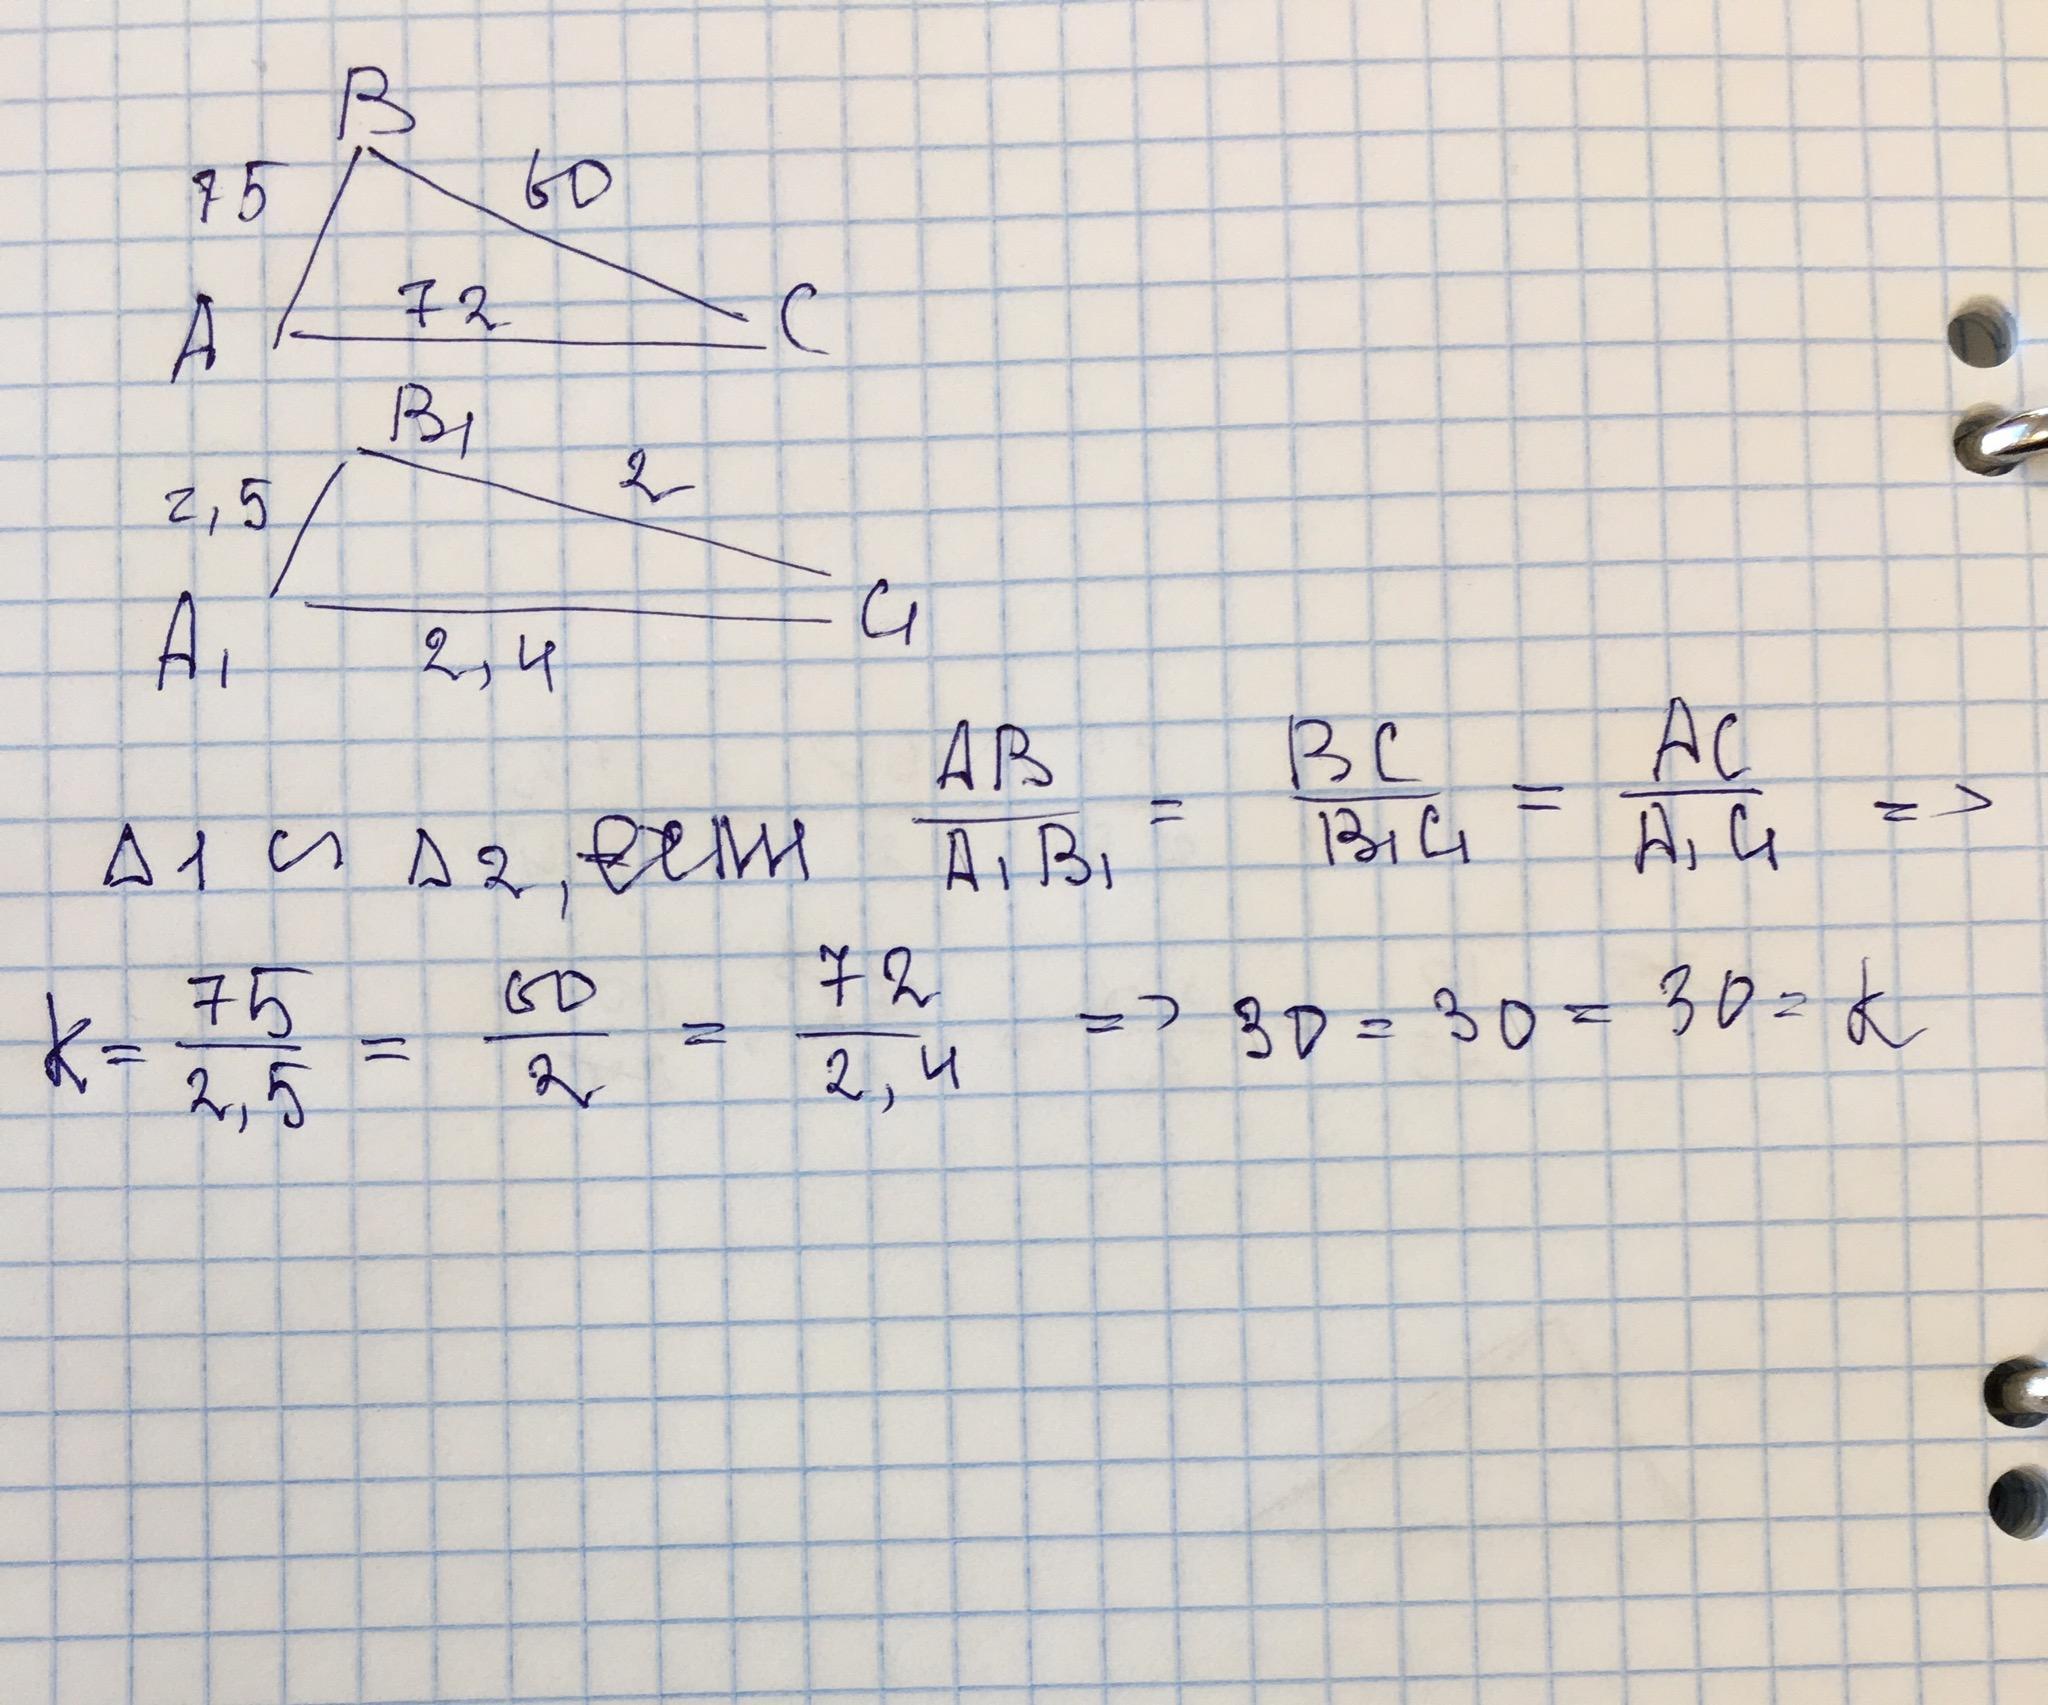 B
75 60
72
A C
B₁
2,5 2
A₁ C₁
2,4
Δ1 ∽ Δ2, если AB/A₁B₁ = BC/B₁C₁ = AC/A₁C₁ =>
k = 75/2,5 = 60/2 = 72/2,4 => 30 = 30 = 30 = k